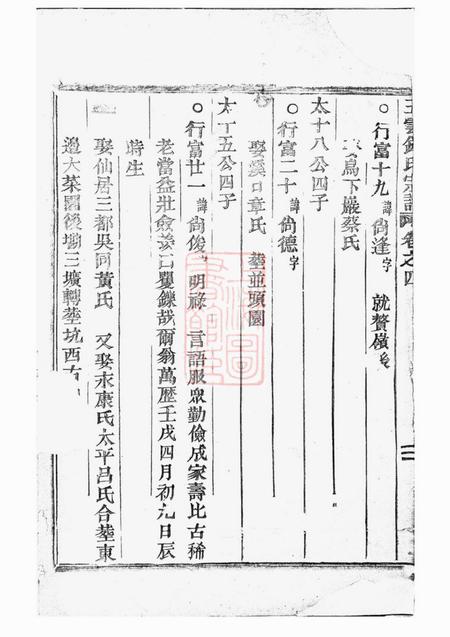 五雲錢氏宗譜卷之四
○行富十九諱尚逢字 就贅嶺後
烏下巖蔡氏
太十八公四子
○行富二十諱尚德字
娶溪口章氏 塟並頭園
太十五公四子
○行富廿一諱尚俊 明祿 言語服眾勤儉成家壽比古稀
老當益壯僉羨曰矍鑠哉爾翁萬歷壬戌四月初九日辰
時生
娶仙居三都吳同黃氏 又娶永康氏太平呂氏合塟東
邉大菜園後塘三壙轉塟坑西